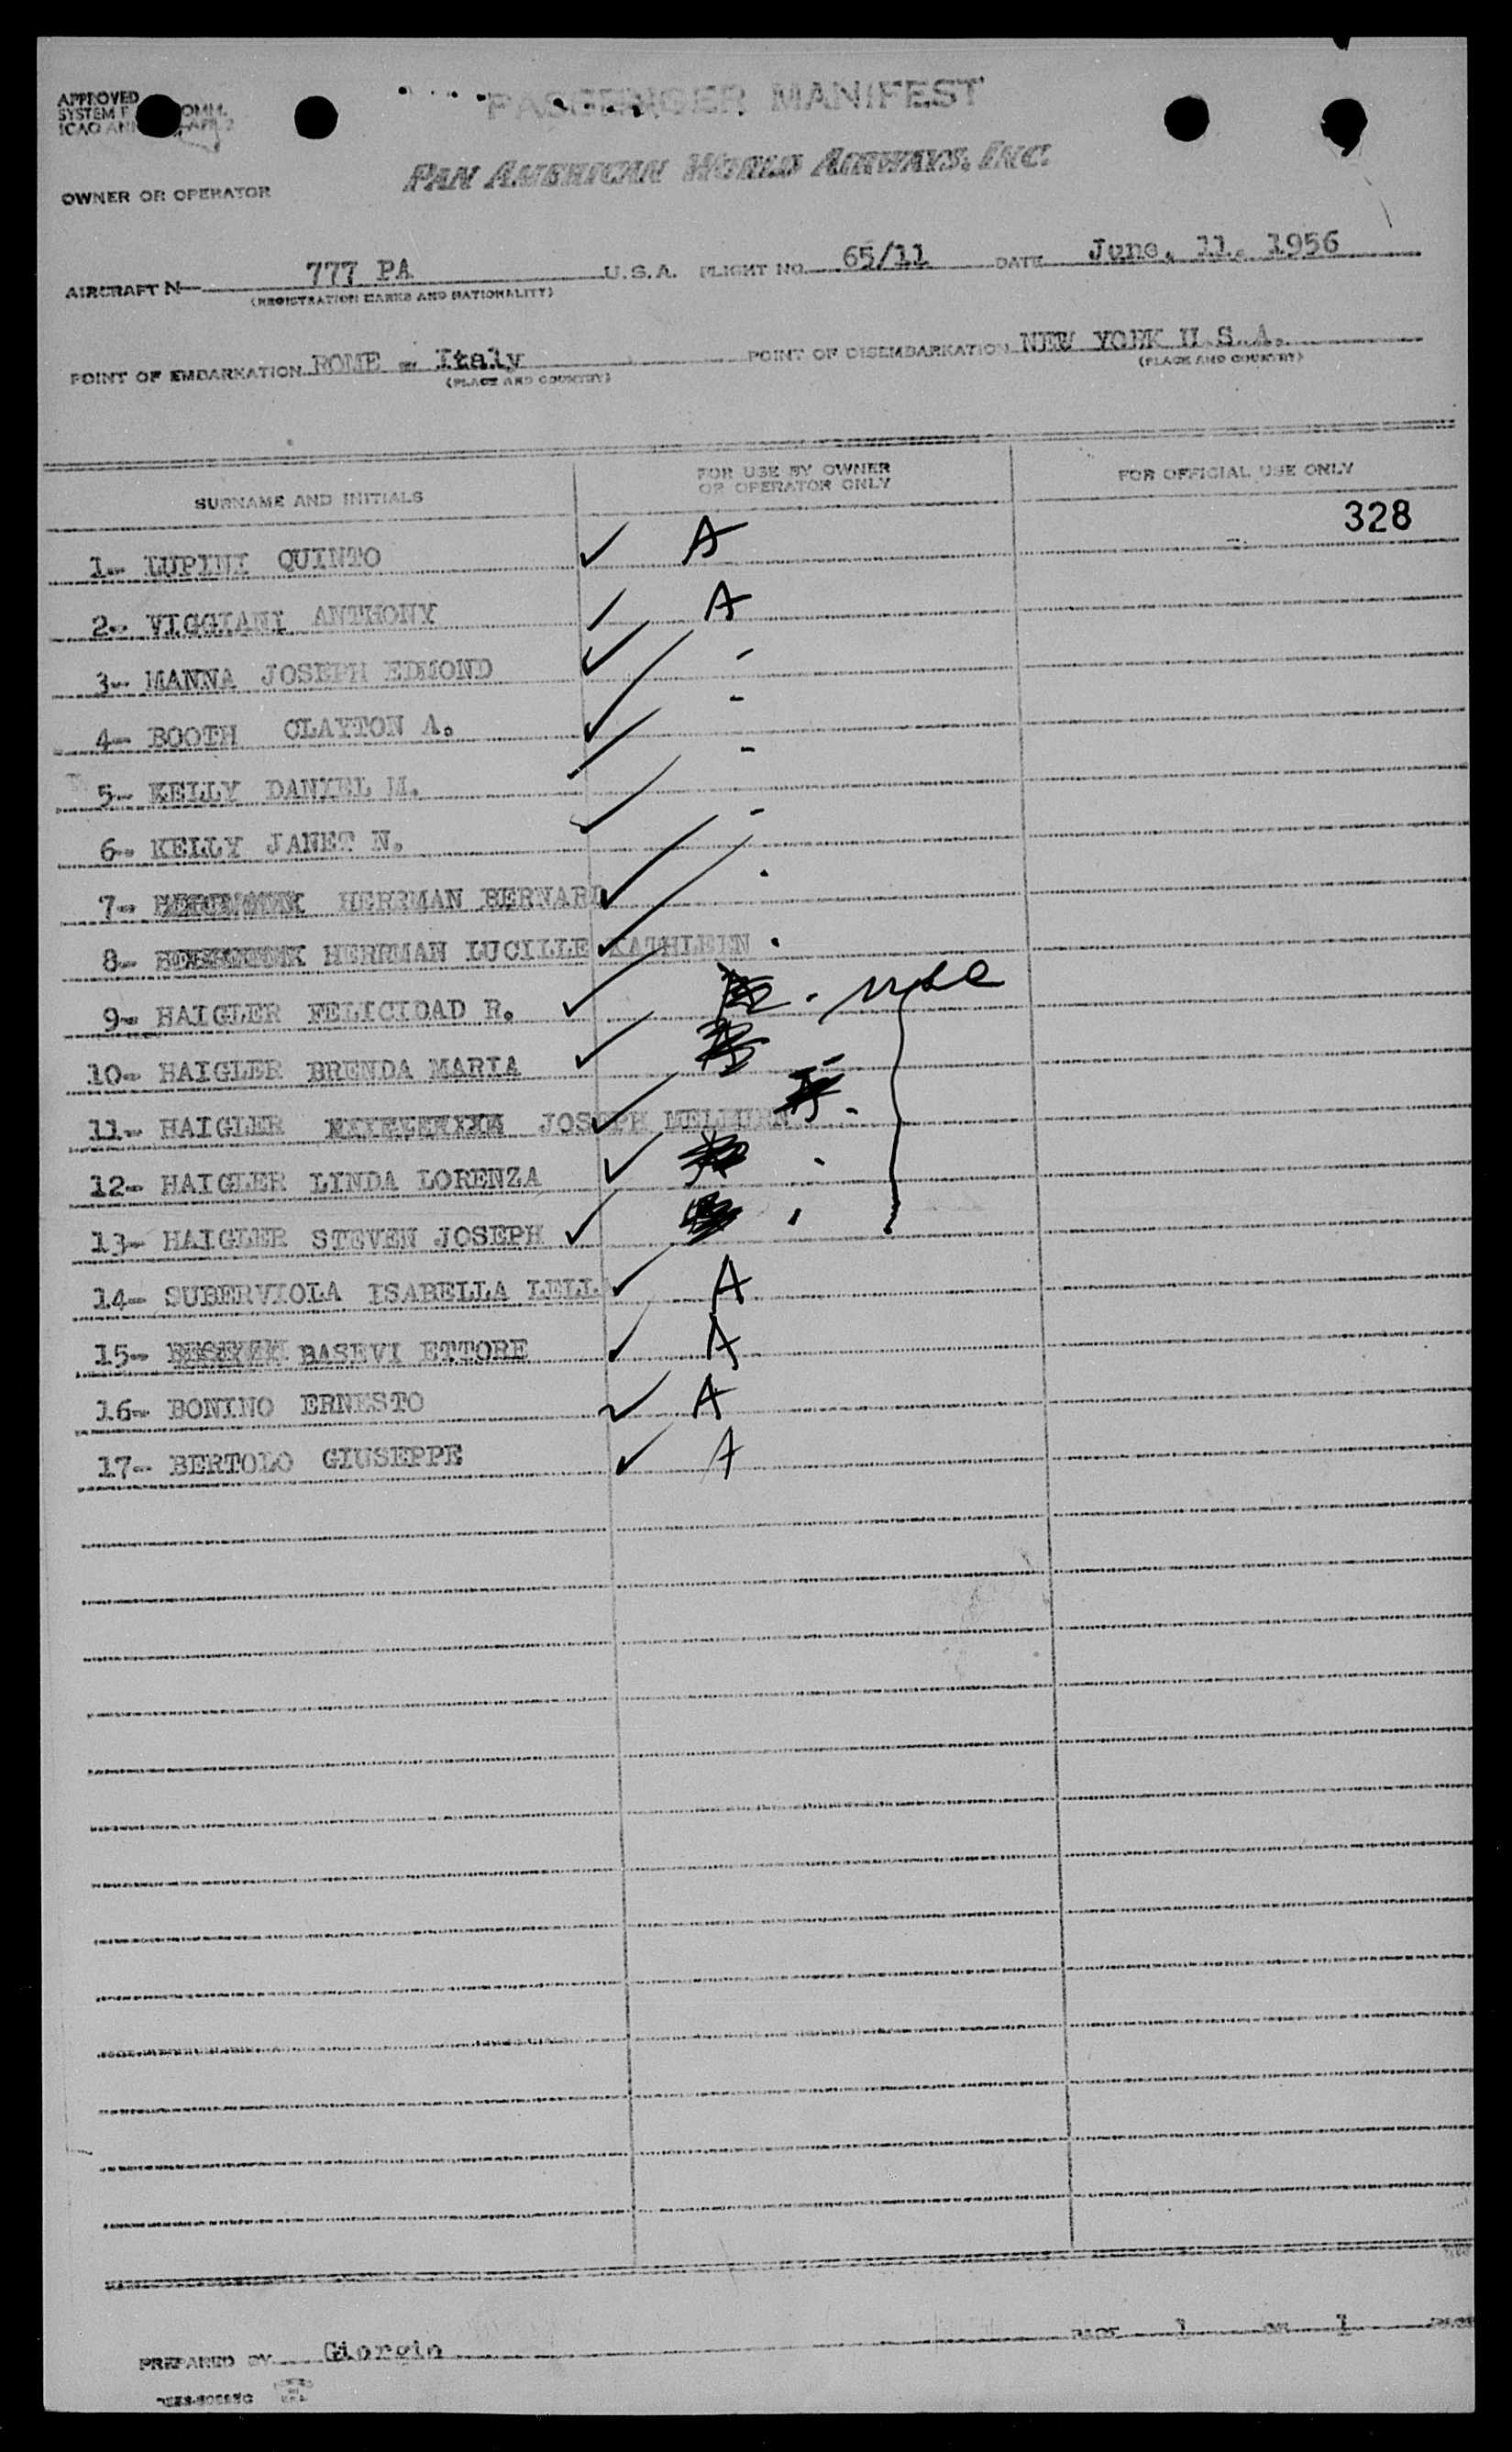 APPROVED
SYSTEM OMM.
ICAO
PASSENGER MANIFEST
PAN AMERICAN WORLD AIRWAYS, INC.
OWNER OR OPERATOR
AIRCRAFT N 777 PA U.S.A. FLIGHT NO. 65/11 DATE June. 11. 1956
(REGISTRATION MARKS AND NATIONALITY)
POINT OF EMBARKATION ROME - Italy POINT OF DISEMBARKATION NEW YORK U.S.A.
(PLACE AND COUNTRY) (PLACE AND COUNTRY)
SURNAME AND INITIALS FOR USE BY OWNER OR OPERATOR ONLY FOR OFFICIAL USE ONLY
328
1- LUPINI QUINTO ✓ A
2- VIGGIANI ANTHONY ✓ A
3- MANNA JOSEPH EDMOND ✓ -
4- BOOTH CLAYTON A. ✓ -
5- KELLY DANIEL M. ✓ -
6- KELLY JANET N. ✓ -
7- HERRMAN BERNARD ✓ .
8- HERRMAN LUCILLE KATHLEEN ✓ .
9- HAIGLER FELICIDAD R. ✓ .
10- HAIGLER BRENDA MARIA ✓ -
11- HAIGLER JOSEPH ✓ -
12- HAIGLER LINDA LORENZA ✓ .
13- HAIGLER STEVEN JOSEPH ✓ .
14- SUBERVIOLA ISABELLA ✓ A
15- BASEVI ETTORE ✓ A
16- BONINO ERNESTO ✓ A
17- BERTOLO GIUSEPPE ✓ A
PREPARED BY Giorgio PAGE 1 OF 1